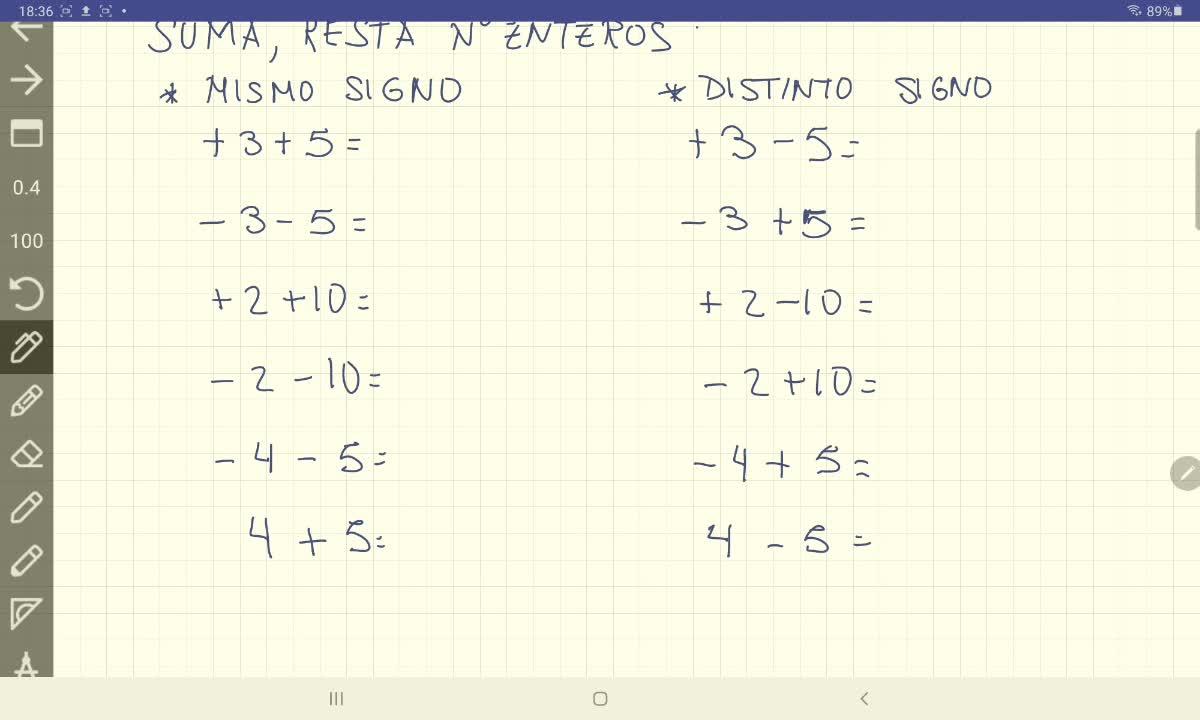 18:36 89%
SUMA, RESTA Nº ENTEROS
* MISMO SIGNO
+3+5=
-3-5=
+2+10=
-2-10=
-4-5=
4+5=
* DISTINTO SIGNO
+3-5=
-3+5=
+2-10=
-2+10=
-4+5=
4-5=
0.4
100